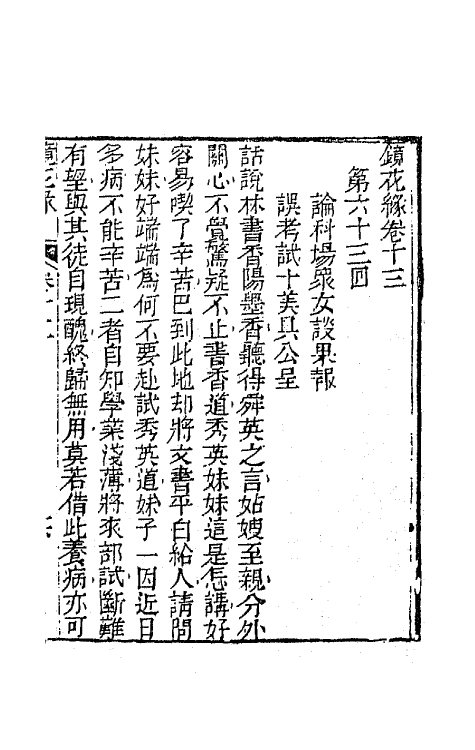 鏡花緣卷十三
第六十三回
論科場眾女談果報
誤考試十美具公呈
話說林書香陽墨香聽得舜英之言姑嫂至親分外
關心不覺驚疑不止書香道秀英妹妹這是怎講好
容易喫了辛苦巴到此地却將文書平白給人請問
妹妹好端端為何不要赴試秀英道妹子一因近日
多病不能辛苦二者自知學業淺薄將來部試斷難
有望與其徒自現醜終歸無用莫若借此養病亦可